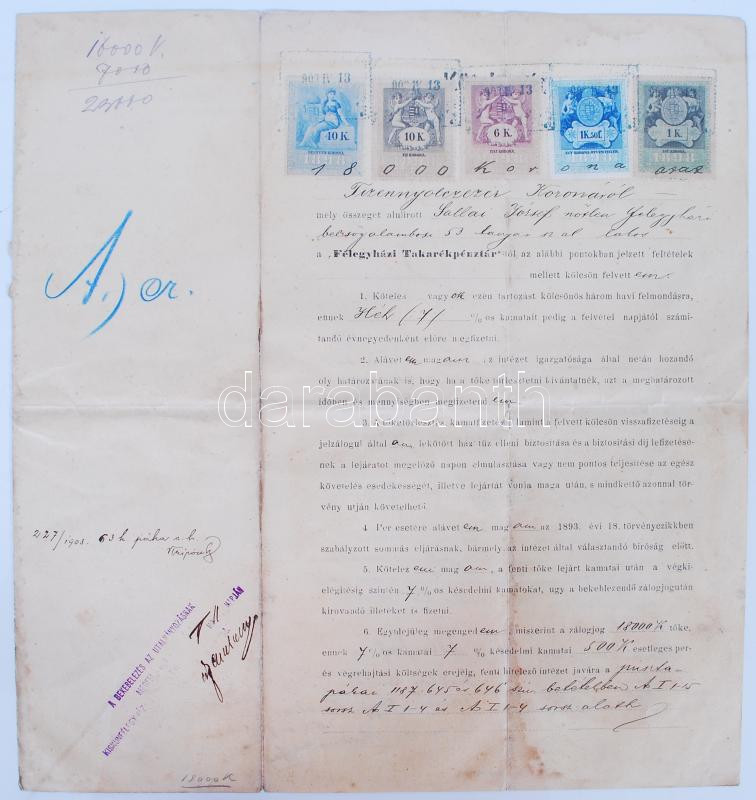 16000 K.
7000
23000
A.) er.
903 IV 13
903 IV 13
IV 13
10 K.
10 K.
6 K.
1K.50f.
1 K.
1898
1898
18 000 Korona azaz
Tizennyolczezer Koronáról
mely összeget alulirott Sallai József nőtlen
53
a „Félegyházi Takarékpénztár"-tól az alábbi pontokban jelzett feltételek
mellett kölcsön felvettem.
1. Köteles vagyok ezen tartozást kölcsönös három havi felmondásra,
ennek Hét (7) %-os kamatait pedig a felvétel napjától számi-
tandó évnegyedenként előre megfizetni.
2. Alávetem magam az intézet igazgatósága által netán hozandó
oly határozatának is, hogy ha a tőke törlesztetni kivántatnék, azt a meghatározott
időben és mennyiségben megfizetend em
3. A tőketörlesztés, kamatfizetés, valamint a felvett kölcsön visszafizetéseig a
jelzálogul által am lekötött ház tűz elleni biztositása és a biztositási dij lefizetésé-
nek a lejáratot megelőző napon elmulasztása vagy nem pontos teljesitése az egész
követelés esedékességét, illetve lejártát vonja maga után, s mindkettő azonnal tör-
vény utján követelhető.
4. Per esetére alávetem magam az 1893. évi 18. törvényczikkben
szabályzott sommás eljárásnak, bármely, az intézet által választandó biróság előtt.
5. Kötelezem magam, a fenti tőke lejárt kamatai után a végki-
elégitésig szintén 7 %-os késedelmi kamatokat, ugy a bekeblezendő zálogjogután
kirovandó illetéket is fizetni.
6. Egyidejüleg megengedem, miszerint a zálogjog 18000 K tőke,
ennek 7 %-os kamatai 7 % késedelmi kamatai 500 K esetleges per-
és végrehajtási költségek erejéig, fenti hitelező intézet javára a puszta-
pákai 1187. 645 és 646 sz. betétekben A I 1-15
sorsz. A I 1-4 és A I 1-4 sorsz. alatt
227/1903.
A BEKEBELEZÉS AZ UTALVÁNYOZÁSNAK
NAPJÁN
KISKUNFÉLEGYHÁZ
18000 K
darabanth